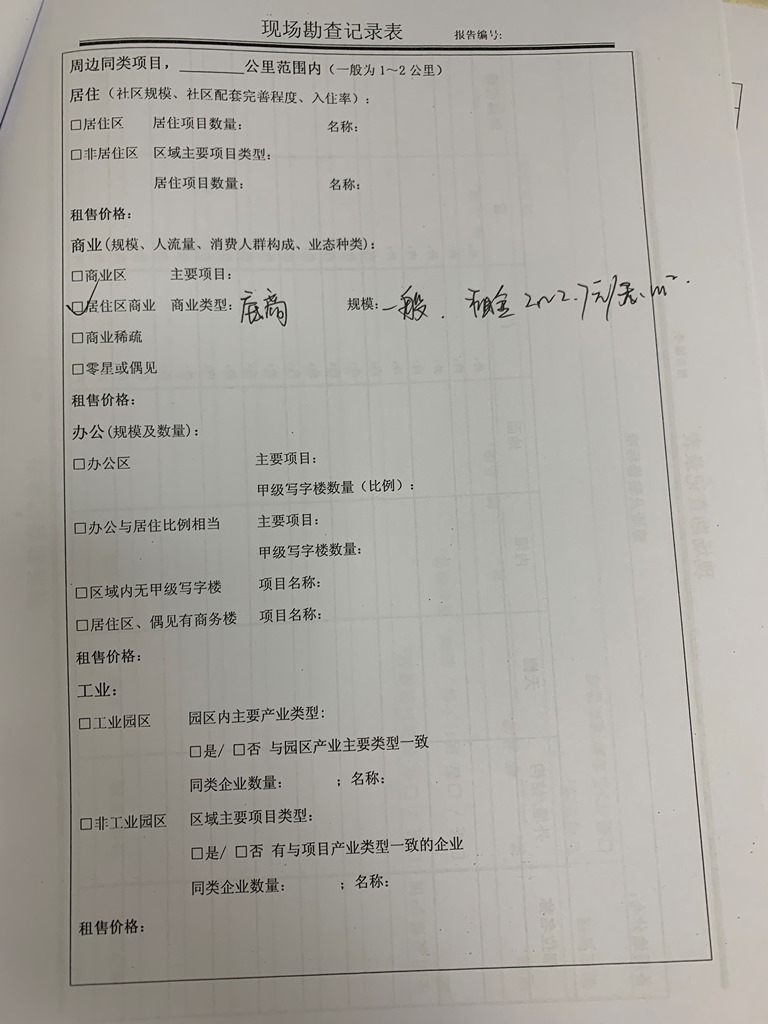 现场勘查记录表 报告编号:
周边同类项目，________公里范围内（一般为1～2公里）
居住（社区规模、社区配套完善程度、入住率）：
□居住区 居住项目数量： 名称：
□非居住区 区域主要项目类型：
居住项目数量： 名称：
租售价格：
商业(规模、人流量、消费人群构成、业态种类)：
□商业区 主要项目：
☑居住区商业 商业类型：底商 规模：一般. 租金2~2.7元/天·m².
□商业稀疏
□零星或偶见
租售价格：
办公(规模及数量)：
□办公区 主要项目：
甲级写字楼数量（比例）：
□办公与居住比例相当 主要项目：
甲级写字楼数量：
□区域内无甲级写字楼 项目名称：
□居住区、偶见有商务楼 项目名称：
租售价格：
工业：
□工业园区 园区内主要产业类型：
□是/ □否 与园区产业主要类型一致
同类企业数量： ；名称：
□非工业园区 区域主要项目类型：
□是/ □否 有与项目产业类型一致的企业
同类企业数量： ；名称：
租售价格：